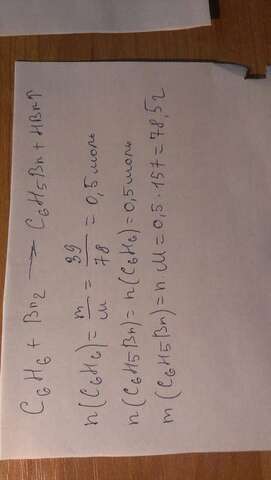 C₆H₆ + Br₂ ⟶ C₆H₅Br + HBr↑
n(C₆H₆) = m/M = 39/78 = 0,5 моль
n(C₆H₅Br) = n(C₆H₆) = 0,5 моль
m(C₆H₅Br) = n M = 0,5 · 157 = 78,5 г